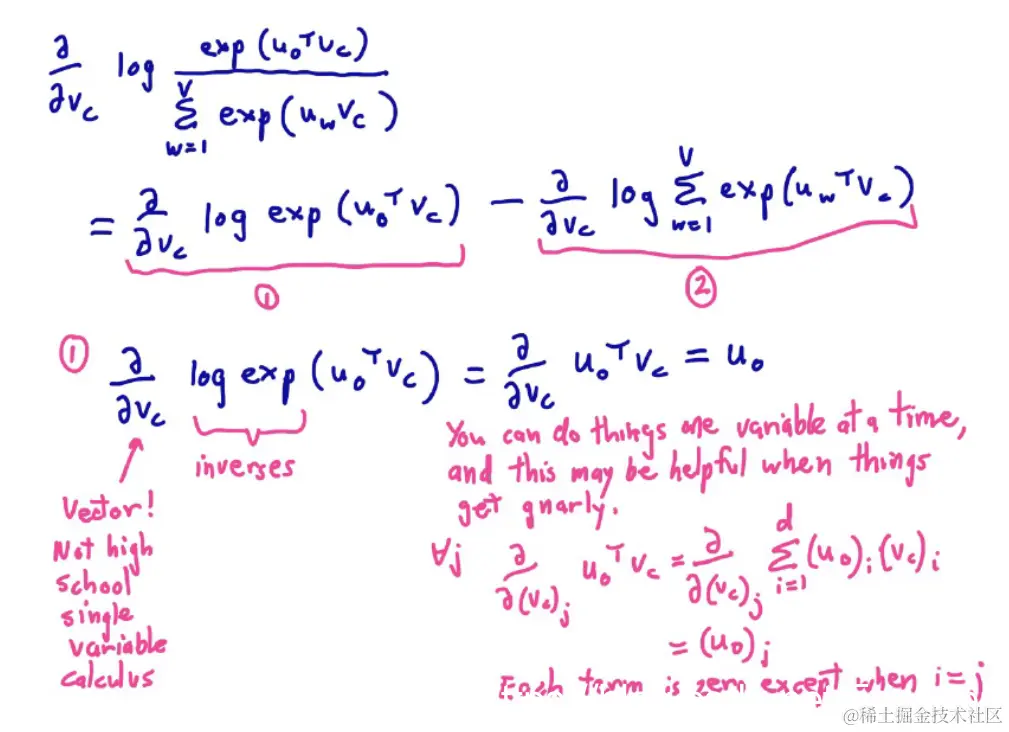 ∂/∂v_c log exp(u_o^T v_c) / Σ_{w=1}^{V} exp(u_w v_c)
= ∂/∂v_c log exp(u_o^T v_c) − ∂/∂v_c log Σ_{w=1}^{V} exp(u_w^T v_c)
① ②
① ∂/∂v_c log exp(u_o^T v_c) = ∂/∂v_c u_o^T v_c = u_o
inverses
Vector!
Not high
school
single
variable
calculus
You can do things one variable at a time,
and this may be helpful when things
get gnarly.
∀j ∂/∂(v_c)_j u_o^T v_c = ∂/∂(v_c)_j Σ_{i=1}^{d} (u_o)_i (v_c)_i
= (u_o)_j
Each term is zero except when i=j
@稀土掘金技术社区